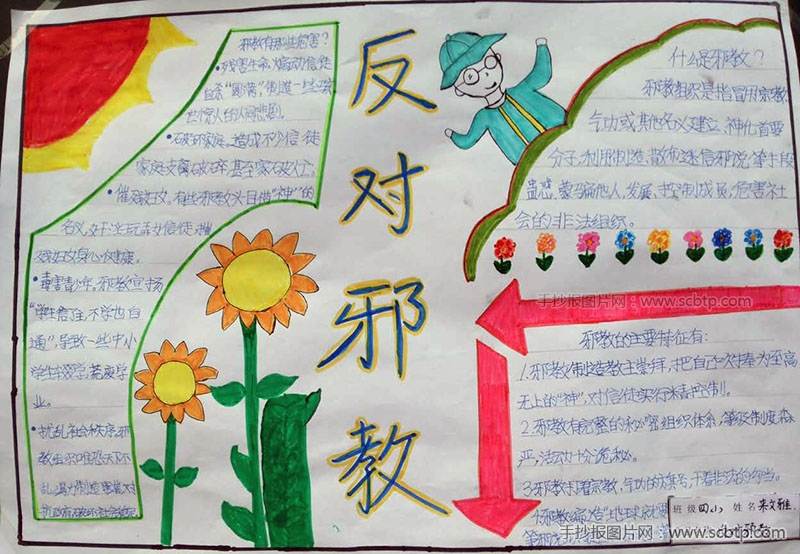 反对邪教
邪教有那些危害?
•残害生命,煽动信徒
自杀"圆满",制造一些
世惊人的人间悲剧。
•破坏家庭,造成不少信徒
家庭支离破碎,甚至家破人亡。
名义,奸淫玩弄女信徒,摧
残妇女身心健康。
•毒害青少年,邪教宣扬
通",导致一些中小
学生辍学,荒废学
业。
•扰乱社会秩序,邪
教组织唯恐天下不
什么是邪教?
邪教组织是指冒用宗教,
气功或其他名义建立,神化首要
分子,利用制造,散布迷信邪说等手段
蛊惑,蒙骗他人,发展,控制成员,危害社
会的非法组织。
手抄报图片网:www.scbtp.com
邪教的主要特征有:
1.邪教制造教主崇拜,把自己奉为至高
无上的"神",对信徒实行精神控制。
2.邪教有完整的秘密组织体系,等级制度森
严,活动十分诡秘。
3.邪教打着宗教,气功的旗号,干着非法的勾当。
班级 四小 姓名 来文雅
手抄报图片网:www.scbtp.com